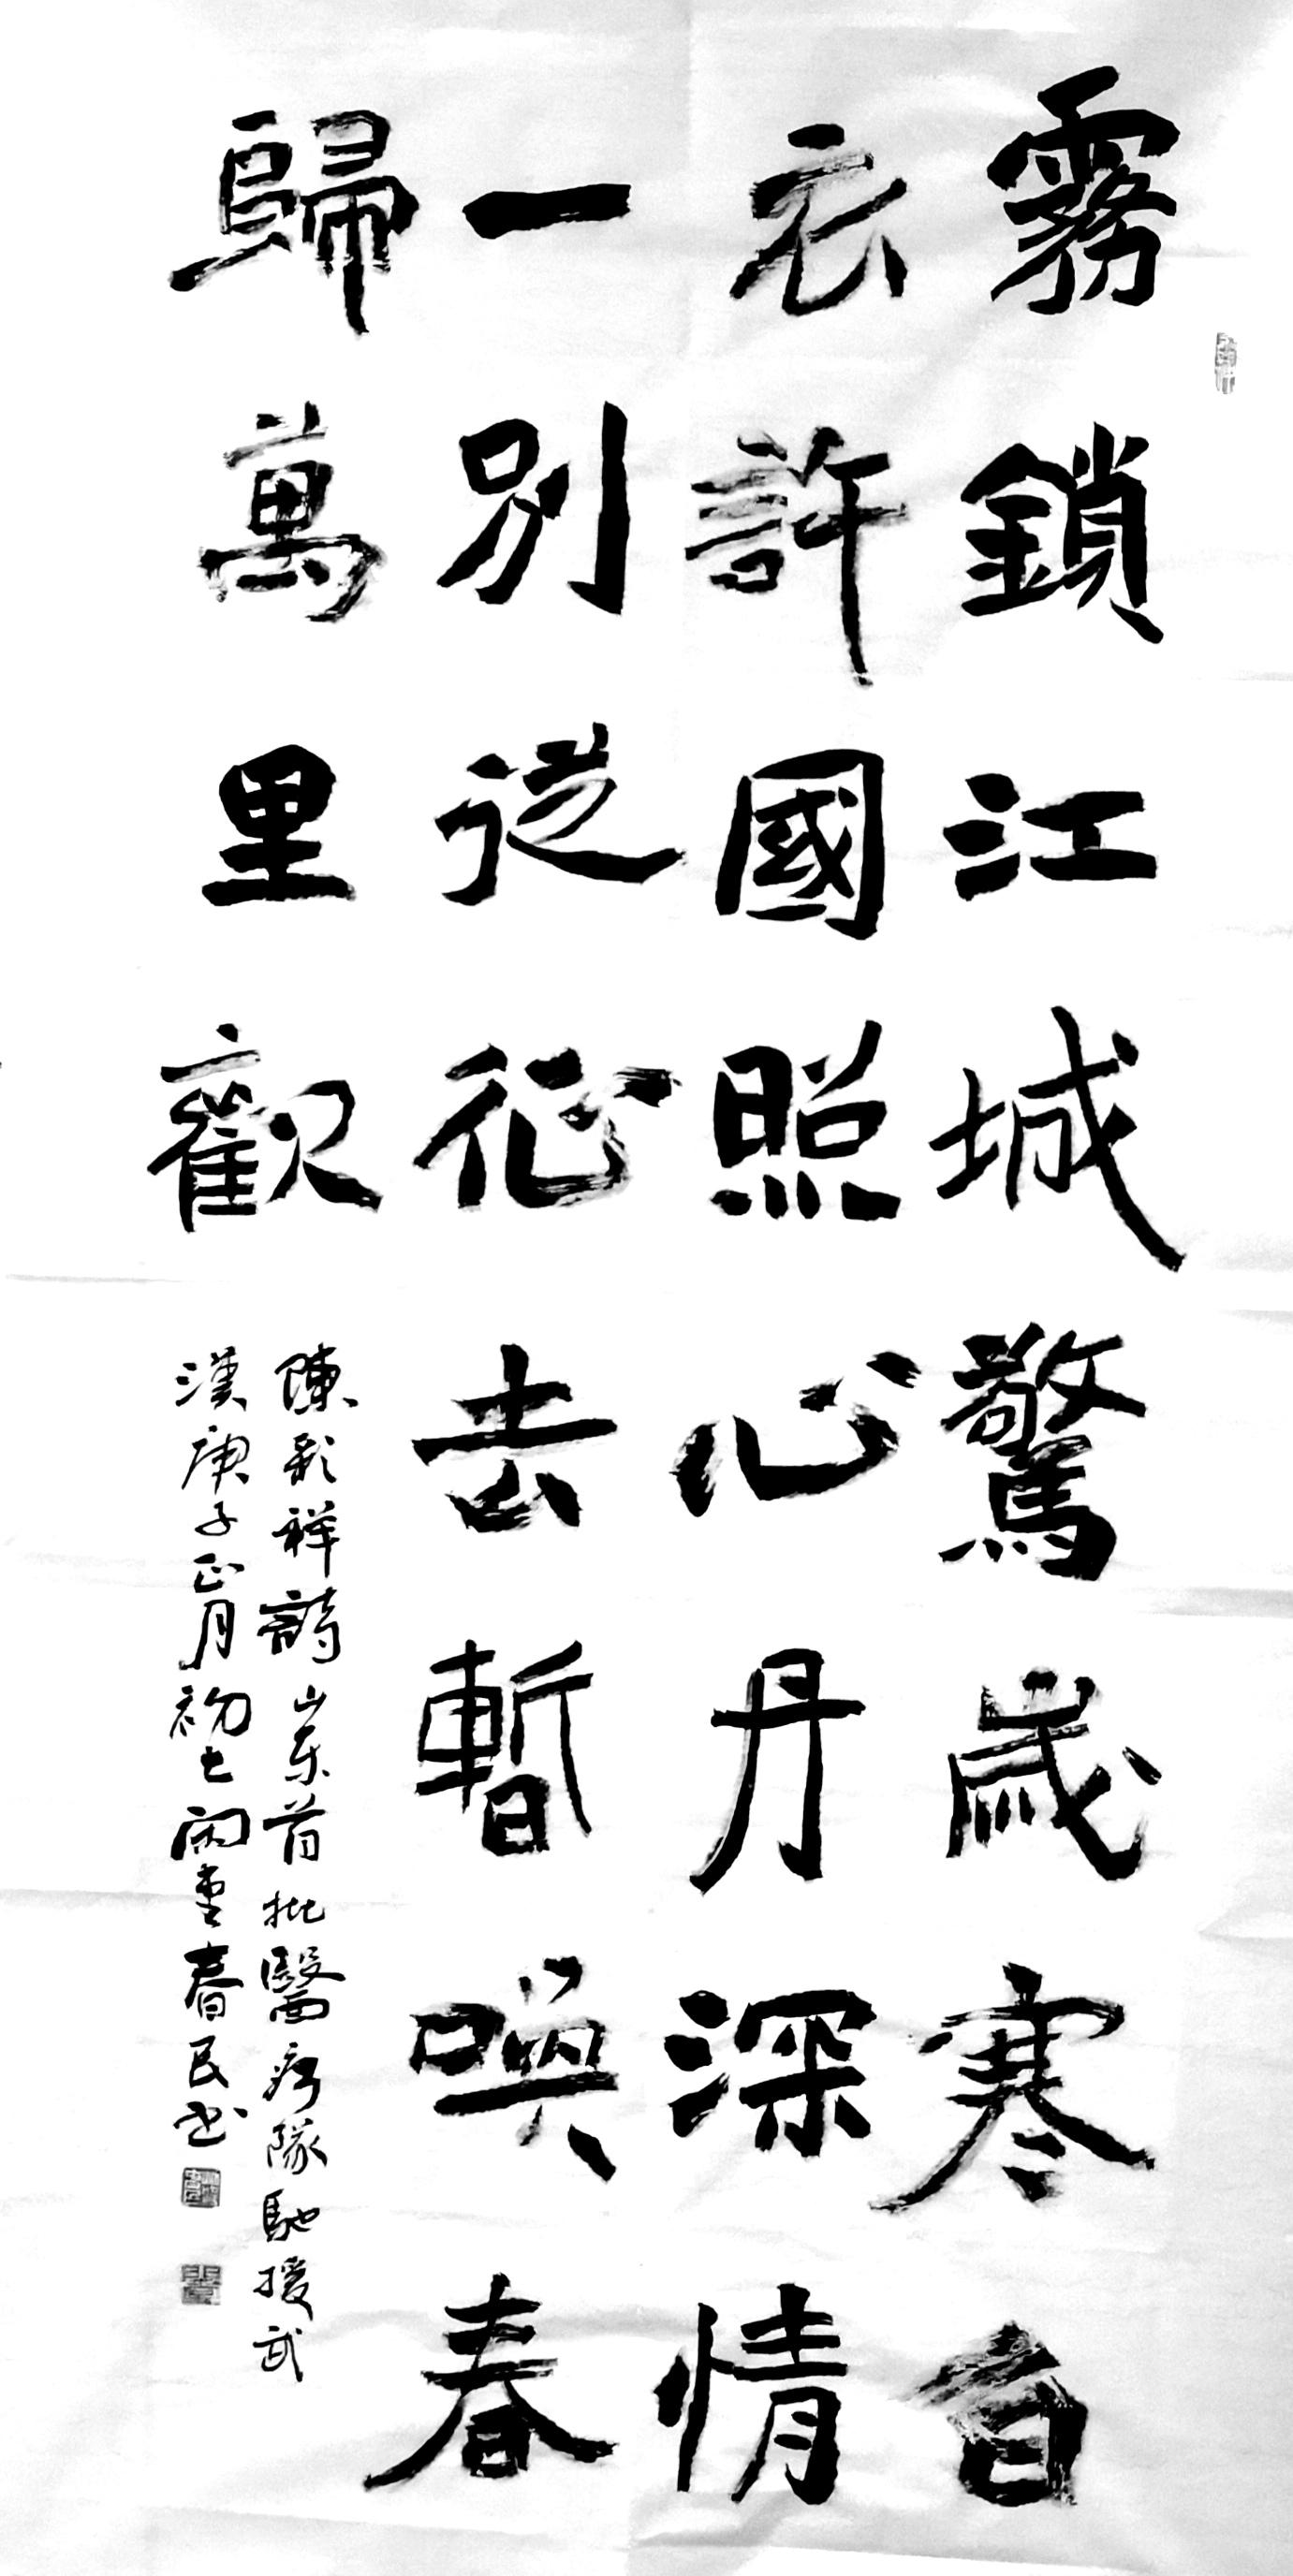 霧鎖江城驚歲寒白
衣許國照心丹深情
一別從征去暫喚春
歸萬里歡
陳彩祥詩山东首批醫疗隊馳援武
漢庚子正月初七閑堂春民书